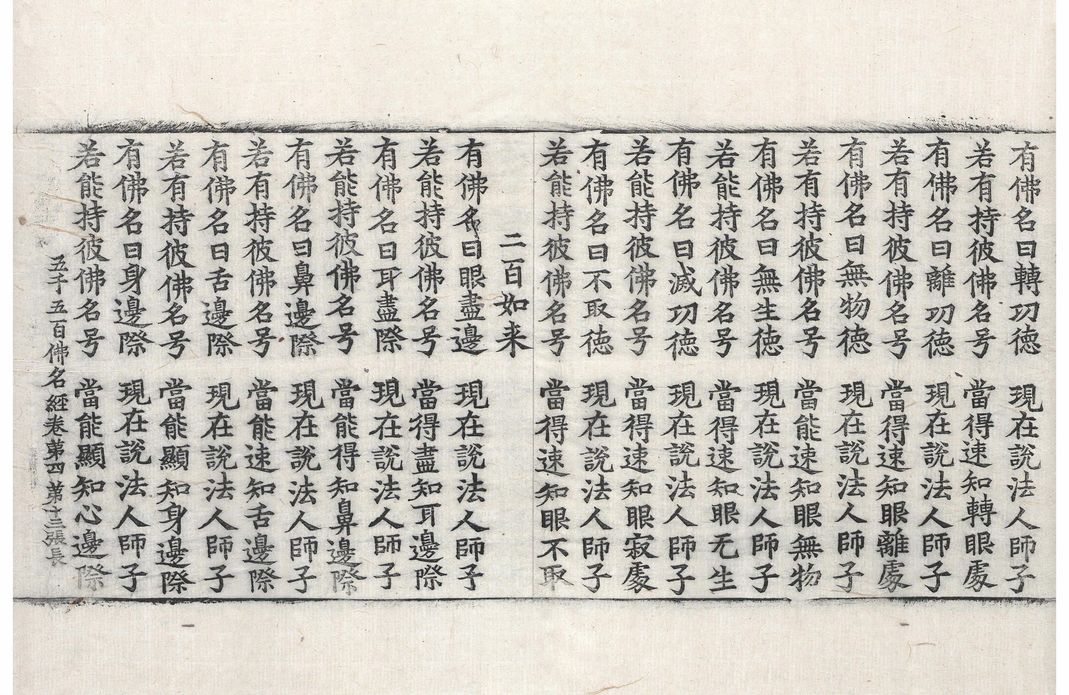 有佛名曰轉功德 現在說法人師子
若有持彼佛名号 當得速知轉眼處
有佛名曰離功德 現在說法人師子
若有持彼佛名号 當得速知眼離處
有佛名曰無物德 現在說法人師子
若有持彼佛名号 當能速知眼無物
有佛名曰無生德 現在說法人師子
若能持彼佛名号 當得速知眼无生
有佛名曰滅功德 現在說法人師子
若能持彼佛名号 當得速知眼寂處
有佛名曰不取德 現在說法人師子
若能持彼佛名号 當得速知眼不取
二百如来
有佛名曰眼盡邊 現在說法人師子
若能持彼佛名号 當得盡知耳邊際
有佛名曰耳盡際 現在說法人師子
若能持彼佛名号 當能得知鼻邊際
有佛名曰鼻邊際 現在說法人師子
若有持彼佛名号 當能速知舌邊際
有佛名曰舌邊際 現在說法人師子
若有持彼佛名号 當能顯知身邊際
有佛名曰身邊際 現在說法人師子
若能持彼佛名号 當能顯知心邊際
五千五百佛名經卷第四 第十三張 長